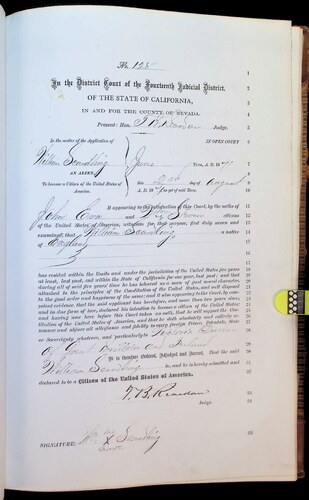 No. 125
In the District Court of the Fourteenth Judicial District,
OF THE STATE OF CALIFORNIA,
IN AND FOR THE COUNTY OF NEVADA.
Present: Hon. T. B. Reardan Judge.
In the matter of the Application of
IN OPEN COURT
William Scandling June Term, A. D. 18
AN ALIEN,
To become a Citizen of the United States of America.
this 2nd day of August
A. D. 18
It appearing to the satisfaction of this Court, by the oaths of
John and citizens
of the United States of America, witnesses for that purpose, first duly sworn and
examined, that William Scandling a native
of England
has resided within the limits and under the jurisdiction of the United States five years
at least, last past, and within the State of California for one year, last past; and that
during all of said five years' time he has behaved as a man of good moral character,
attached to the principles of the Constitution of the United States, and well disposed
to the good order and happiness of the same; and it also appearing to the Court, by
competent evidence, that the said applicant has heretofore, and more than two years since,
and in due form of law, declared his intention to become a citizen of the United States;
and having now here before this Court taken an oath, that he will support the Con-
stitution of the United States of America, and that he doth absolutely and entirely re-
nounce and abjure all allegiance and fidelity to every foreign Prince, Potentate, State
or Sovereignty whatever, and particularly to Victoria Queen
of Great Britain and Ireland
It is therefore Ordered, Adjudged and Decreed, That the said
William Scandling be, and he is hereby admitted and
declared to be a Citizen of the United States of America.
T. B. Reardan
Judge.
SIGNATURE: Wm X Scandling